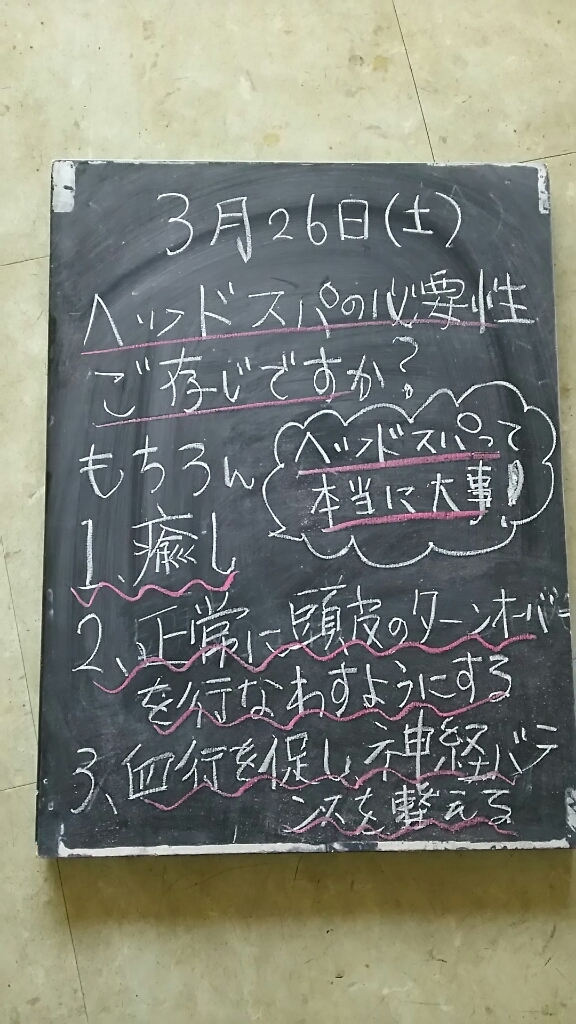 3月26日(土)
ヘッドスパの必要性
ご存じですか?
もちろん
ヘッドスパって
本当に大事!
1、癒し
2、正常に頭皮のターンオーバー
を行なわすようにする
3、血行を促し、神経バラ
ンスを整える